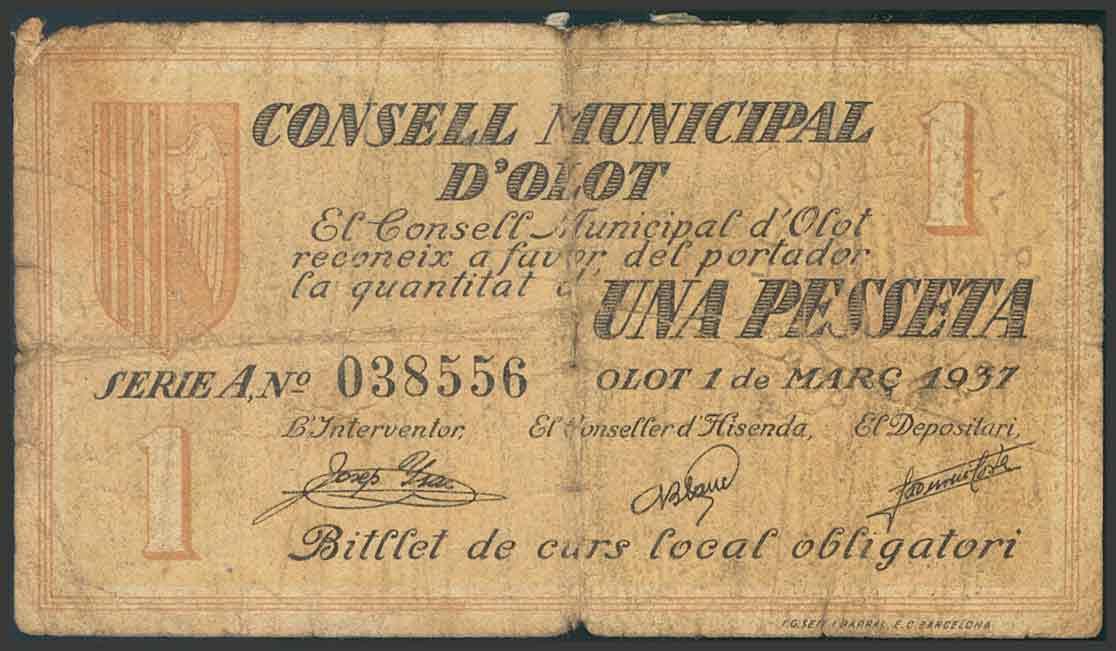 CONSELL MUNICIPAL
D'OLOT
1
El Consell Municipal d'Olot
reconeix a favor del portador
la quantitat d'
UNA PESSETA
SERIE A, Nº 038556
OLOT 1 de MARÇ 1937
L'Interventor, El Conseller d'Hisenda, El Depositari,
1
Josep
Bitllet de curs local obligatori
I.G. SEIX I BARRAL, E.C. BARCELONA